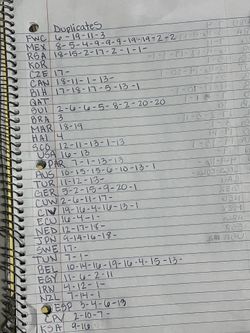 Duplicates
FWC 6-19-11-3
MEX 8-5-4-9-9-9-19-19-2-2
RSA 18-15-2-17-2-1-1-
KOR
CZE 17-
CAN 18-11-1-13-
BIH 17-18-17-5-13-1
QAT
SUI 2-6-6-5-8-2-20-20
BRA 3
MAR 18-19
HAI 4
SCO 12-11-13-1-13
USA 16-13
PAR 7-1-13-13
AUS 10-15-15-6-10-13-1
TUR 11-12-13-
GER 5-2-15-9-20-1
CUW 2-6-11-17-
CIV 19-16-4-16-13-1
ECU 16-4-1-
NED 12-17-18-
JPN 9-14-16-18-
SWE 17-
TUN 7-1-
BEL 10-14-16-19-16-4-15-13-
EGY 11-6-2-11
IRN 4-12-1-
NZL 7-14-1-
ESP 5-4-6-13
CPV 2-10-7-
KSA 9-16